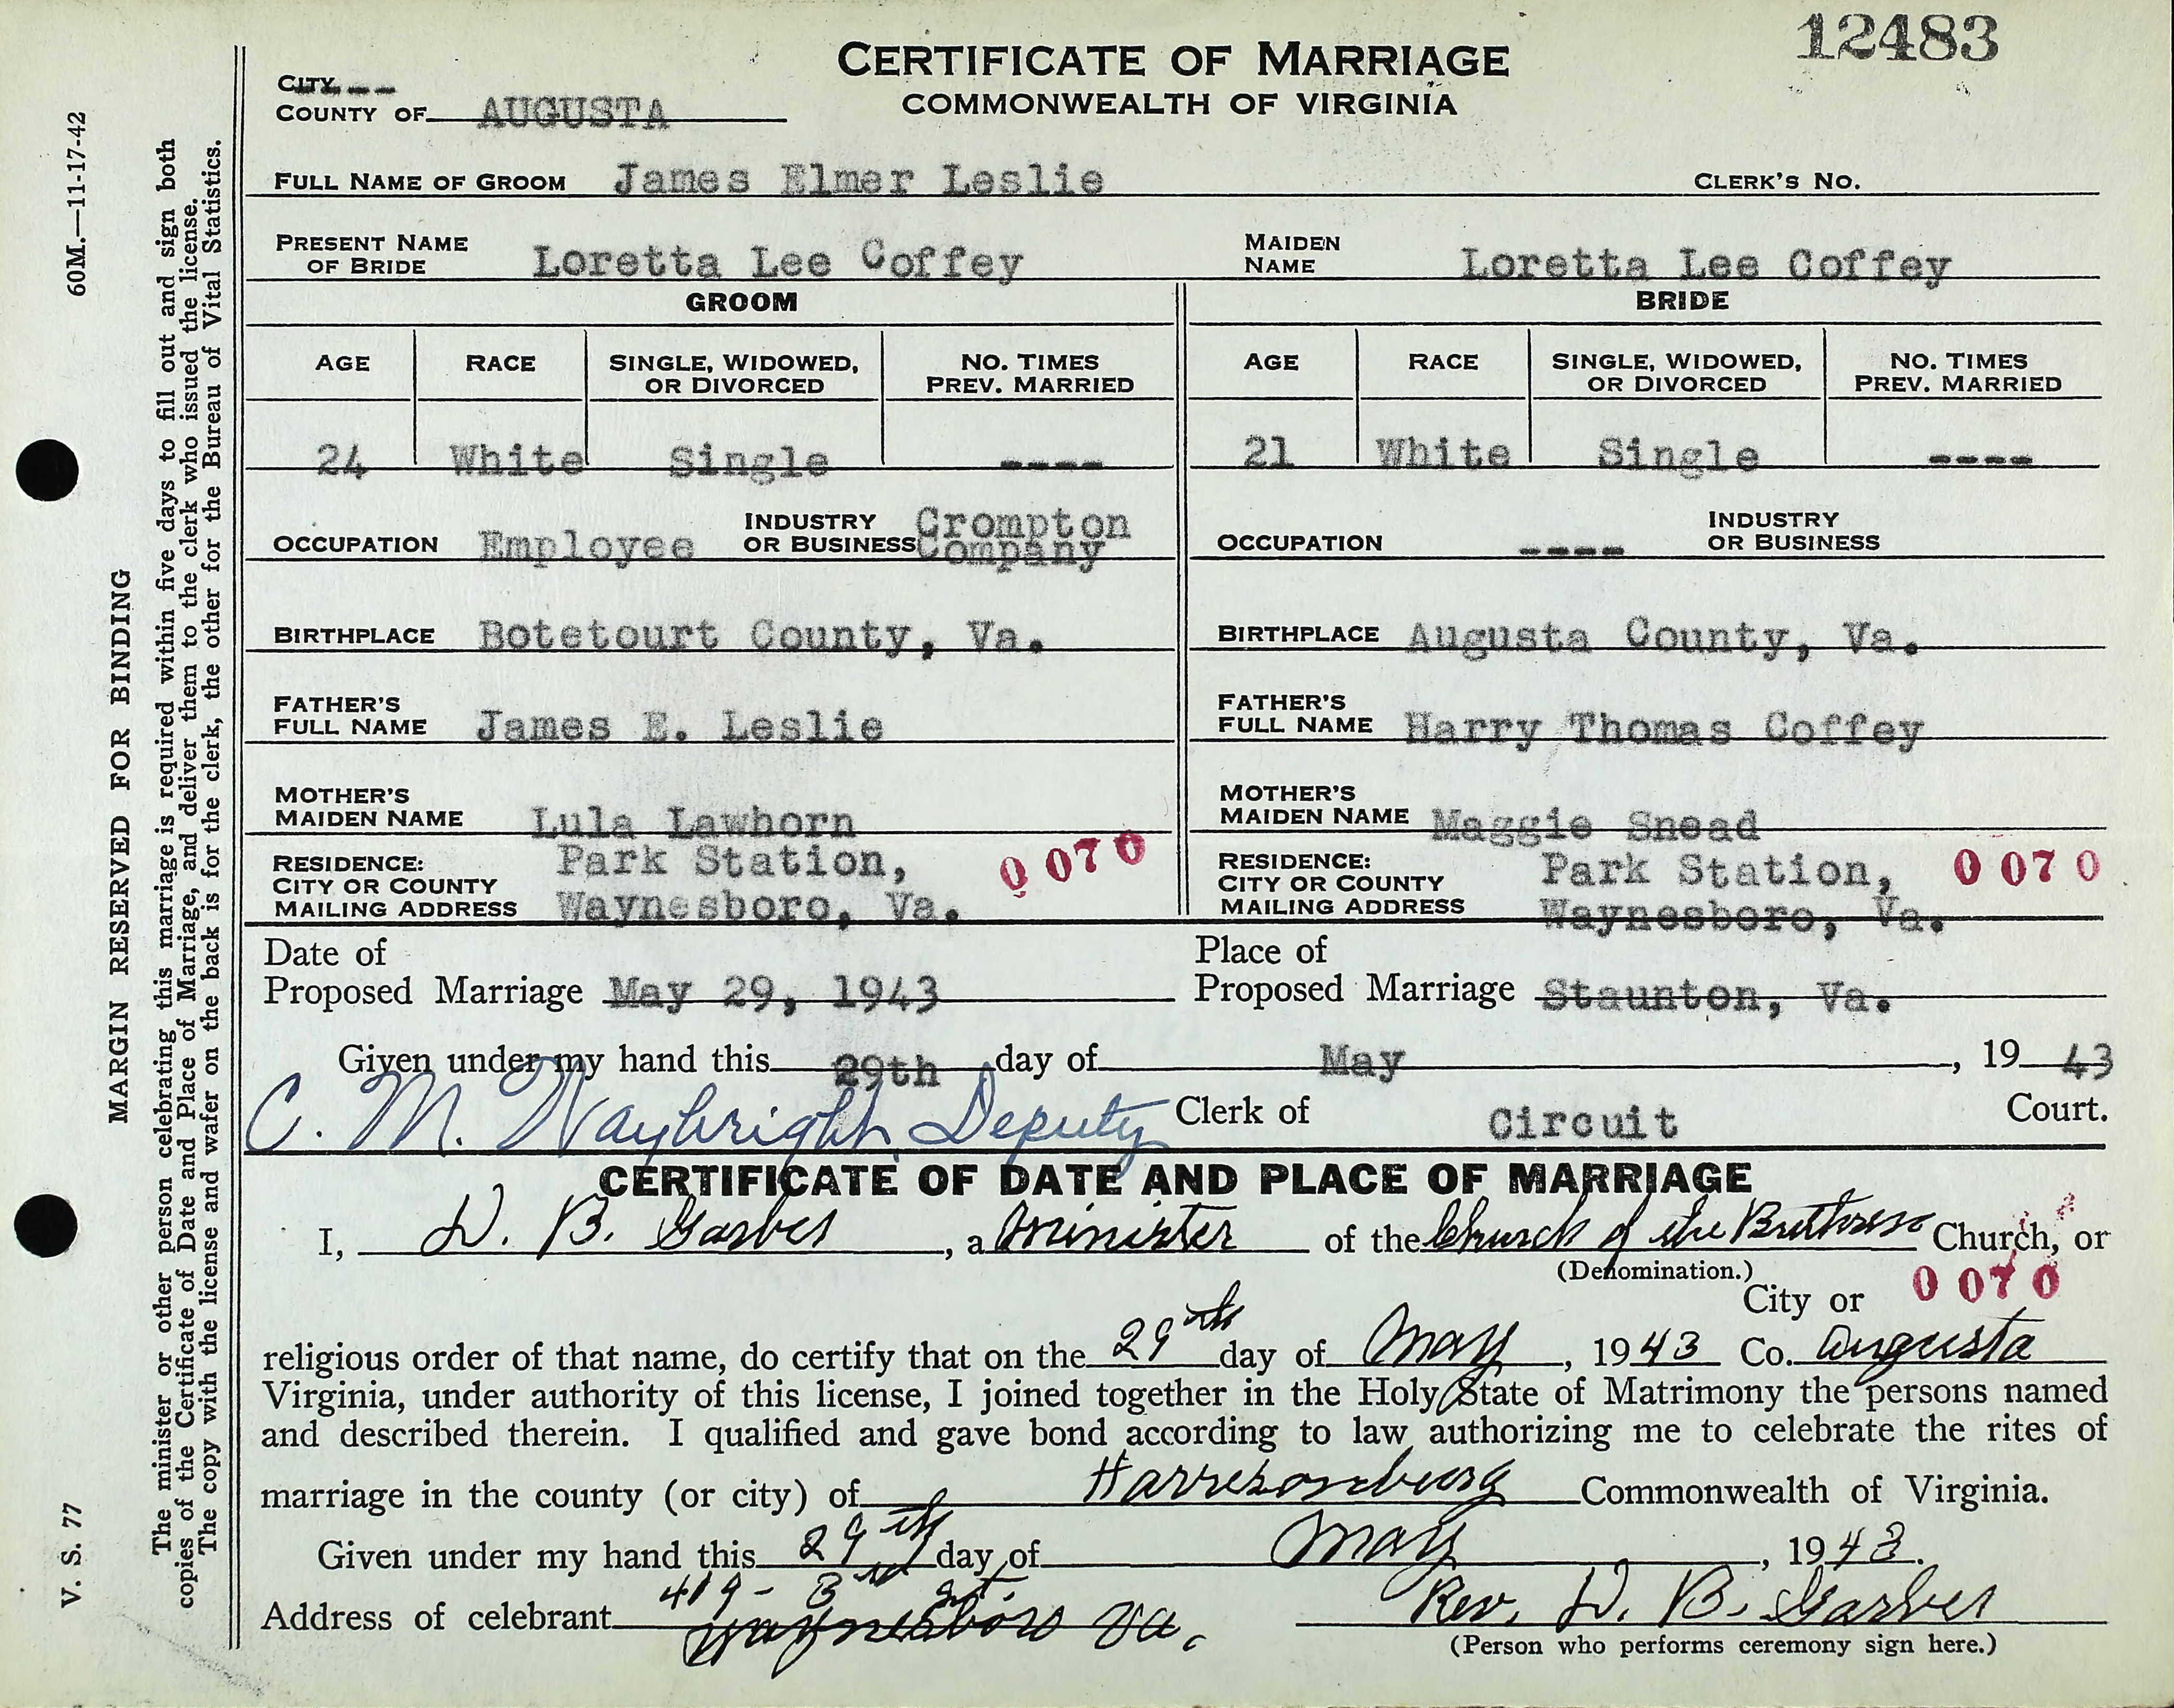 12483
CERTIFICATE OF MARRIAGE
COMMONWEALTH OF VIRGINIA
CITY ---
COUNTY OF AUGUSTA
FULL NAME OF GROOM James Elmer Leslie CLERK'S NO.
PRESENT NAME OF BRIDE Loretta Lee Coffey MAIDEN NAME Loretta Lee Coffey
GROOM BRIDE
AGE RACE SINGLE, WIDOWED, OR DIVORCED NO. TIMES PREV. MARRIED AGE RACE SINGLE, WIDOWED, OR DIVORCED NO. TIMES PREV. MARRIED
24 White Single ---- 21 White Single ----
OCCUPATION Employee INDUSTRY OR BUSINESS Crompton Company OCCUPATION ---- INDUSTRY OR BUSINESS
BIRTHPLACE Botetourt County, Va. BIRTHPLACE Augusta County, Va.
FATHER'S FULL NAME James E. Leslie FATHER'S FULL NAME Harry Thomas Coffey
MOTHER'S MAIDEN NAME Lula Lawhorn MOTHER'S MAIDEN NAME Maggie Snead
RESIDENCE: CITY OR COUNTY MAILING ADDRESS Park Station, Waynesboro, Va. 0070 RESIDENCE: CITY OR COUNTY MAILING ADDRESS Park Station, Waynesboro, Va. 0070
Date of Proposed Marriage May 29, 1943 Place of Proposed Marriage Staunton, Va.
Given under my hand this 29th day of May, 1943
C. M. Waybright, Deputy Clerk of Circuit Court.
CERTIFICATE OF DATE AND PLACE OF MARRIAGE
I, D. B. Garber, a Minister of the Church of the Brethren Church, or
(Denomination.)
City or 0070
religious order of that name, do certify that on the 29th day of May, 1943 Co. Augusta
Virginia, under authority of this license, I joined together in the Holy State of Matrimony the persons named
and described therein. I qualified and gave bond according to law authorizing me to celebrate the rites of
marriage in the county (or city) of Harrisonburg Commonwealth of Virginia.
Given under my hand this 29th day of May, 1943.
Address of celebrant 419 - 3rd st. Waynesboro Va. Rev. D. B. Garber
(Person who performs ceremony sign here.)
60M.—11-17-42
V. S. 77
MARGIN RESERVED FOR BINDING
The minister or other person celebrating this marriage is required within five days to fill out and sign both
copies of the Certificate of Date and Place of Marriage, and deliver them to the clerk who issued the license.
The copy with the license and wafer on the back is for the clerk, the other for the Bureau of Vital Statistics.